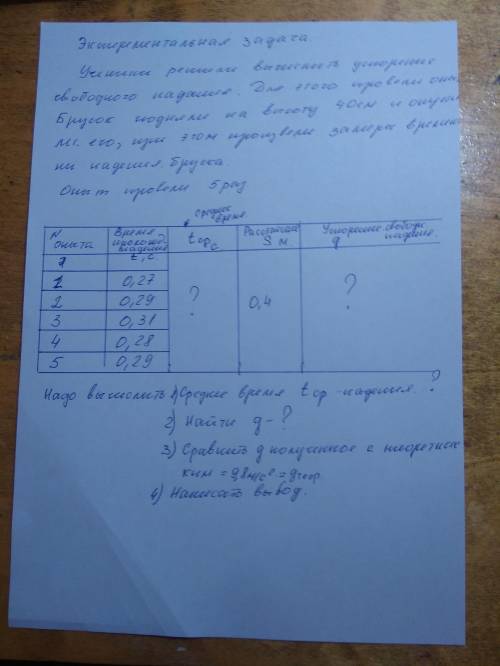 Экспериментальная задача.
Ученики решили вычислить ускорение
свободного падения. Для этого провели опыт
Брусок подняли на высоту 40см и
его, при этом произвели замеры време
ни падения бруска.
Опыт провели 5 раз
среднее
время.
N опыта | Время падения t, c. | tср c | Расстояние S м. | Ускорение свободн падения. g
1 | 0,27 | ? | 0,4 | ?
2 | 0,29
3 | 0,31
4 | 0,28
5 | 0,29
Надо вычислить 1) Среднее время tср - падения. ?
2) Найти g - ?
3) Сравнить g полученное с теоретичес
ким = 9,8 м/с² = gтеор.
4) Написать вывод.